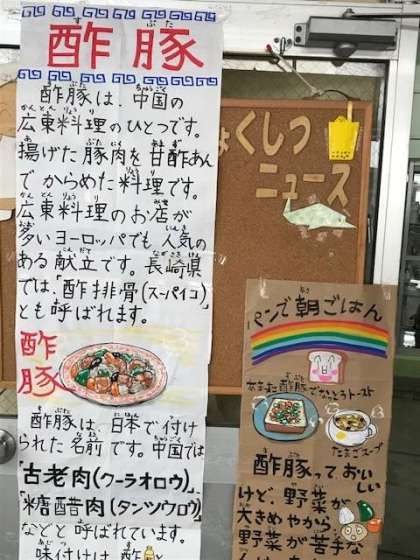 酢豚
酢豚は、中国の
広東料理のひとつです。
揚げた豚肉を甘酢あん
でからめた料理です。
広東料理のお店が
多いヨーロッパでも人気の
ある献立です。長崎県
では、「酢排骨(スーパイコ)」
とも呼ばれます。
酢豚
酢豚は、日本で付け
られた名前です。中国では
「古老肉(クーラオロウ)」
「糖醋肉(タンツウロウ)」
などと呼ばれています。
味付けは酢と
くしつ
ニュース
パンで朝ごはん
酢豚でかんたんトースト
たまごスープ
酢豚って、おいしい
けど、野菜が
大きめやから
野菜が苦手な